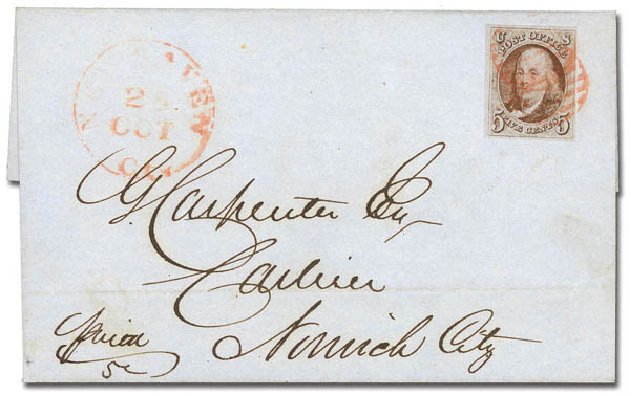 NEW HAVEN
OCT
U S
POST OFFICE
5 FIVE CENTS 5
G Carpenter Esq
Cashier
Norwich City
5